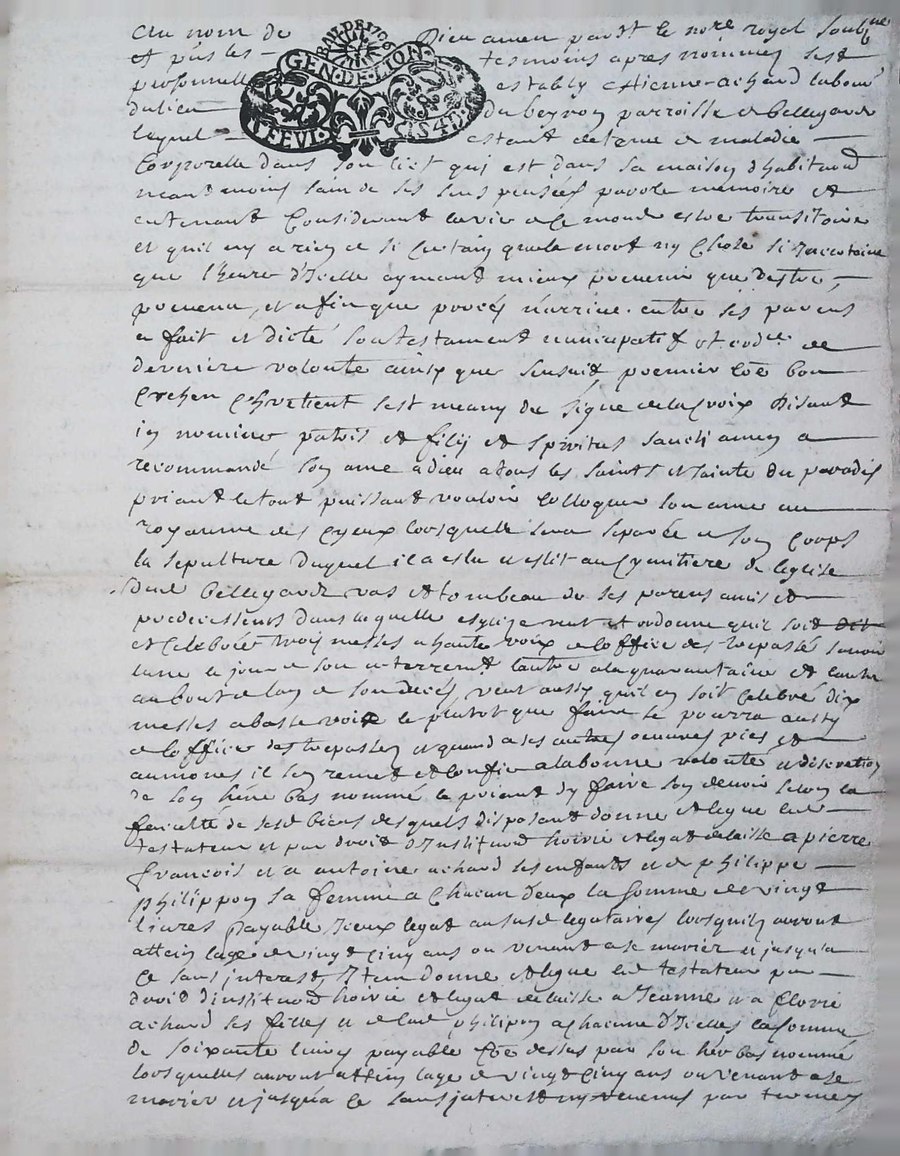 Au nom de Dieu amen par dt le nore royal soubne
et pnts les tesmoins apres nommes sest
personnelle estably Etienne achard labour
du lieu du beyron parroisse de bellegarde
lequel estant detenu de maladie
Corporelle dans son lict qui est dans sa maison d'habitaon
neantmoins sain de ses sens pensées parole memoire et
entenant Considerant la vie de ce monde estre transitoire
et quil ny a rien de si Certain que la mort ny Chose si Incertaine
que l'heure d'Icelle aymant mieux prevenir que destre
prevenu, et afin que procés n'arrive entre ses parens
a fait et dicté son testament nuncupatif et ordre de
derniere volonté ainsy que sensuit, premier Coe bon
Chrestient sest muny du signe de la Croix Disant
in nomine patris et filij et spiritus sancti amen a
recommandé son ame à dieu a tous les saints et sainte du paradis
priant le tout puissant vouloir Colloquer son ame au
royaume des Cyeux lorsquelle sera separée de son Corps
la sepulture duquel il a eslu et eslit au Cymitiere de leglise
dud bellegarde vas et tombeau de ses parens amis et
predecesseurs dans laquelle esglize veut et ordonne quil soit dit
et Celebrée trois messes a haute voix de loffice des trepassés savoir
lune le jour de son enterremt lautre a la quarantaine et lautre
au bout de lan de son decés, veut aussy quil en soit Celebré dix
messes a basse voix le plutot que faire se pourra aussy
de loffice des trepasses, et quand a ses autres oeuvres pies et
aumones il sen remet et Confie a la bonne volonté et discretion
de son hére bas nommé le priant dy faire son devoir selon la
faculté de sesd biens desquels disposant donne et legue led
testateur et par droit d'Institaon hoirie et legat delaisse a pierre
francois et a antoine achard ses enfants et de philippe
philippon sa femme a Chacun deux la somme de vingt
livres payable Iceux legat aususd legataires lorsquils auront
attein lage de vingt Cinq ans ou venant a se marier et jusqua
Ce sans interest, Item donne et legue led testateur par
droit d'instituaon hoirie et legat delaisse a Jeanne et a Clorie
achard ses filles et de lad philipon a Chacune d'Icelles la somme
de soixante livres payable Coe dessus par son hér bas nommé
lorsquelles auront attein lage de vingt Cinq ans ou venant a se
marier et jusqua Ce sans interest ny revenus par termes
GEN·DE·LION